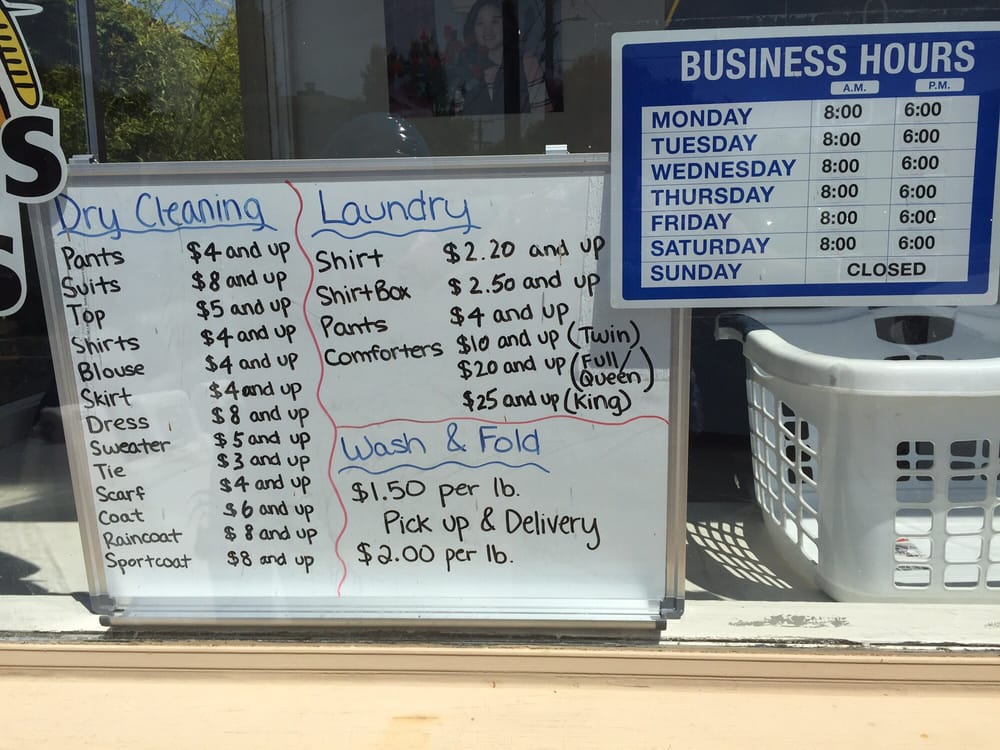 Dry Cleaning
Pants $4 and up
Suits $8 and up
Top $5 and up
Shirts $4 and up
Blouse $4 and up
Skirt $4 and up
Dress $8 and up
Sweater $5 and up
Tie $3 and up
Scarf $4 and up
Coat $6 and up
Raincoat $8 and up
Sportcoat $8 and up
Laundry
Shirt $2.20 and up
Shirt Box $2.50 and up
Pants $4 and up
Comforters $10 and up (Twin)
$20 and up (Full/
Queen)
$25 and up (King)
Wash & Fold
$1.50 per lb.
Pick up & Delivery
$2.00 per lb.
BUSINESS HOURS
A.M. P.M.
MONDAY 8:00 6:00
TUESDAY 8:00 6:00
WEDNESDAY 8:00 6:00
THURSDAY 8:00 6:00
FRIDAY 8:00 6:00
SATURDAY 8:00 6:00
SUNDAY CLOSED
S
S